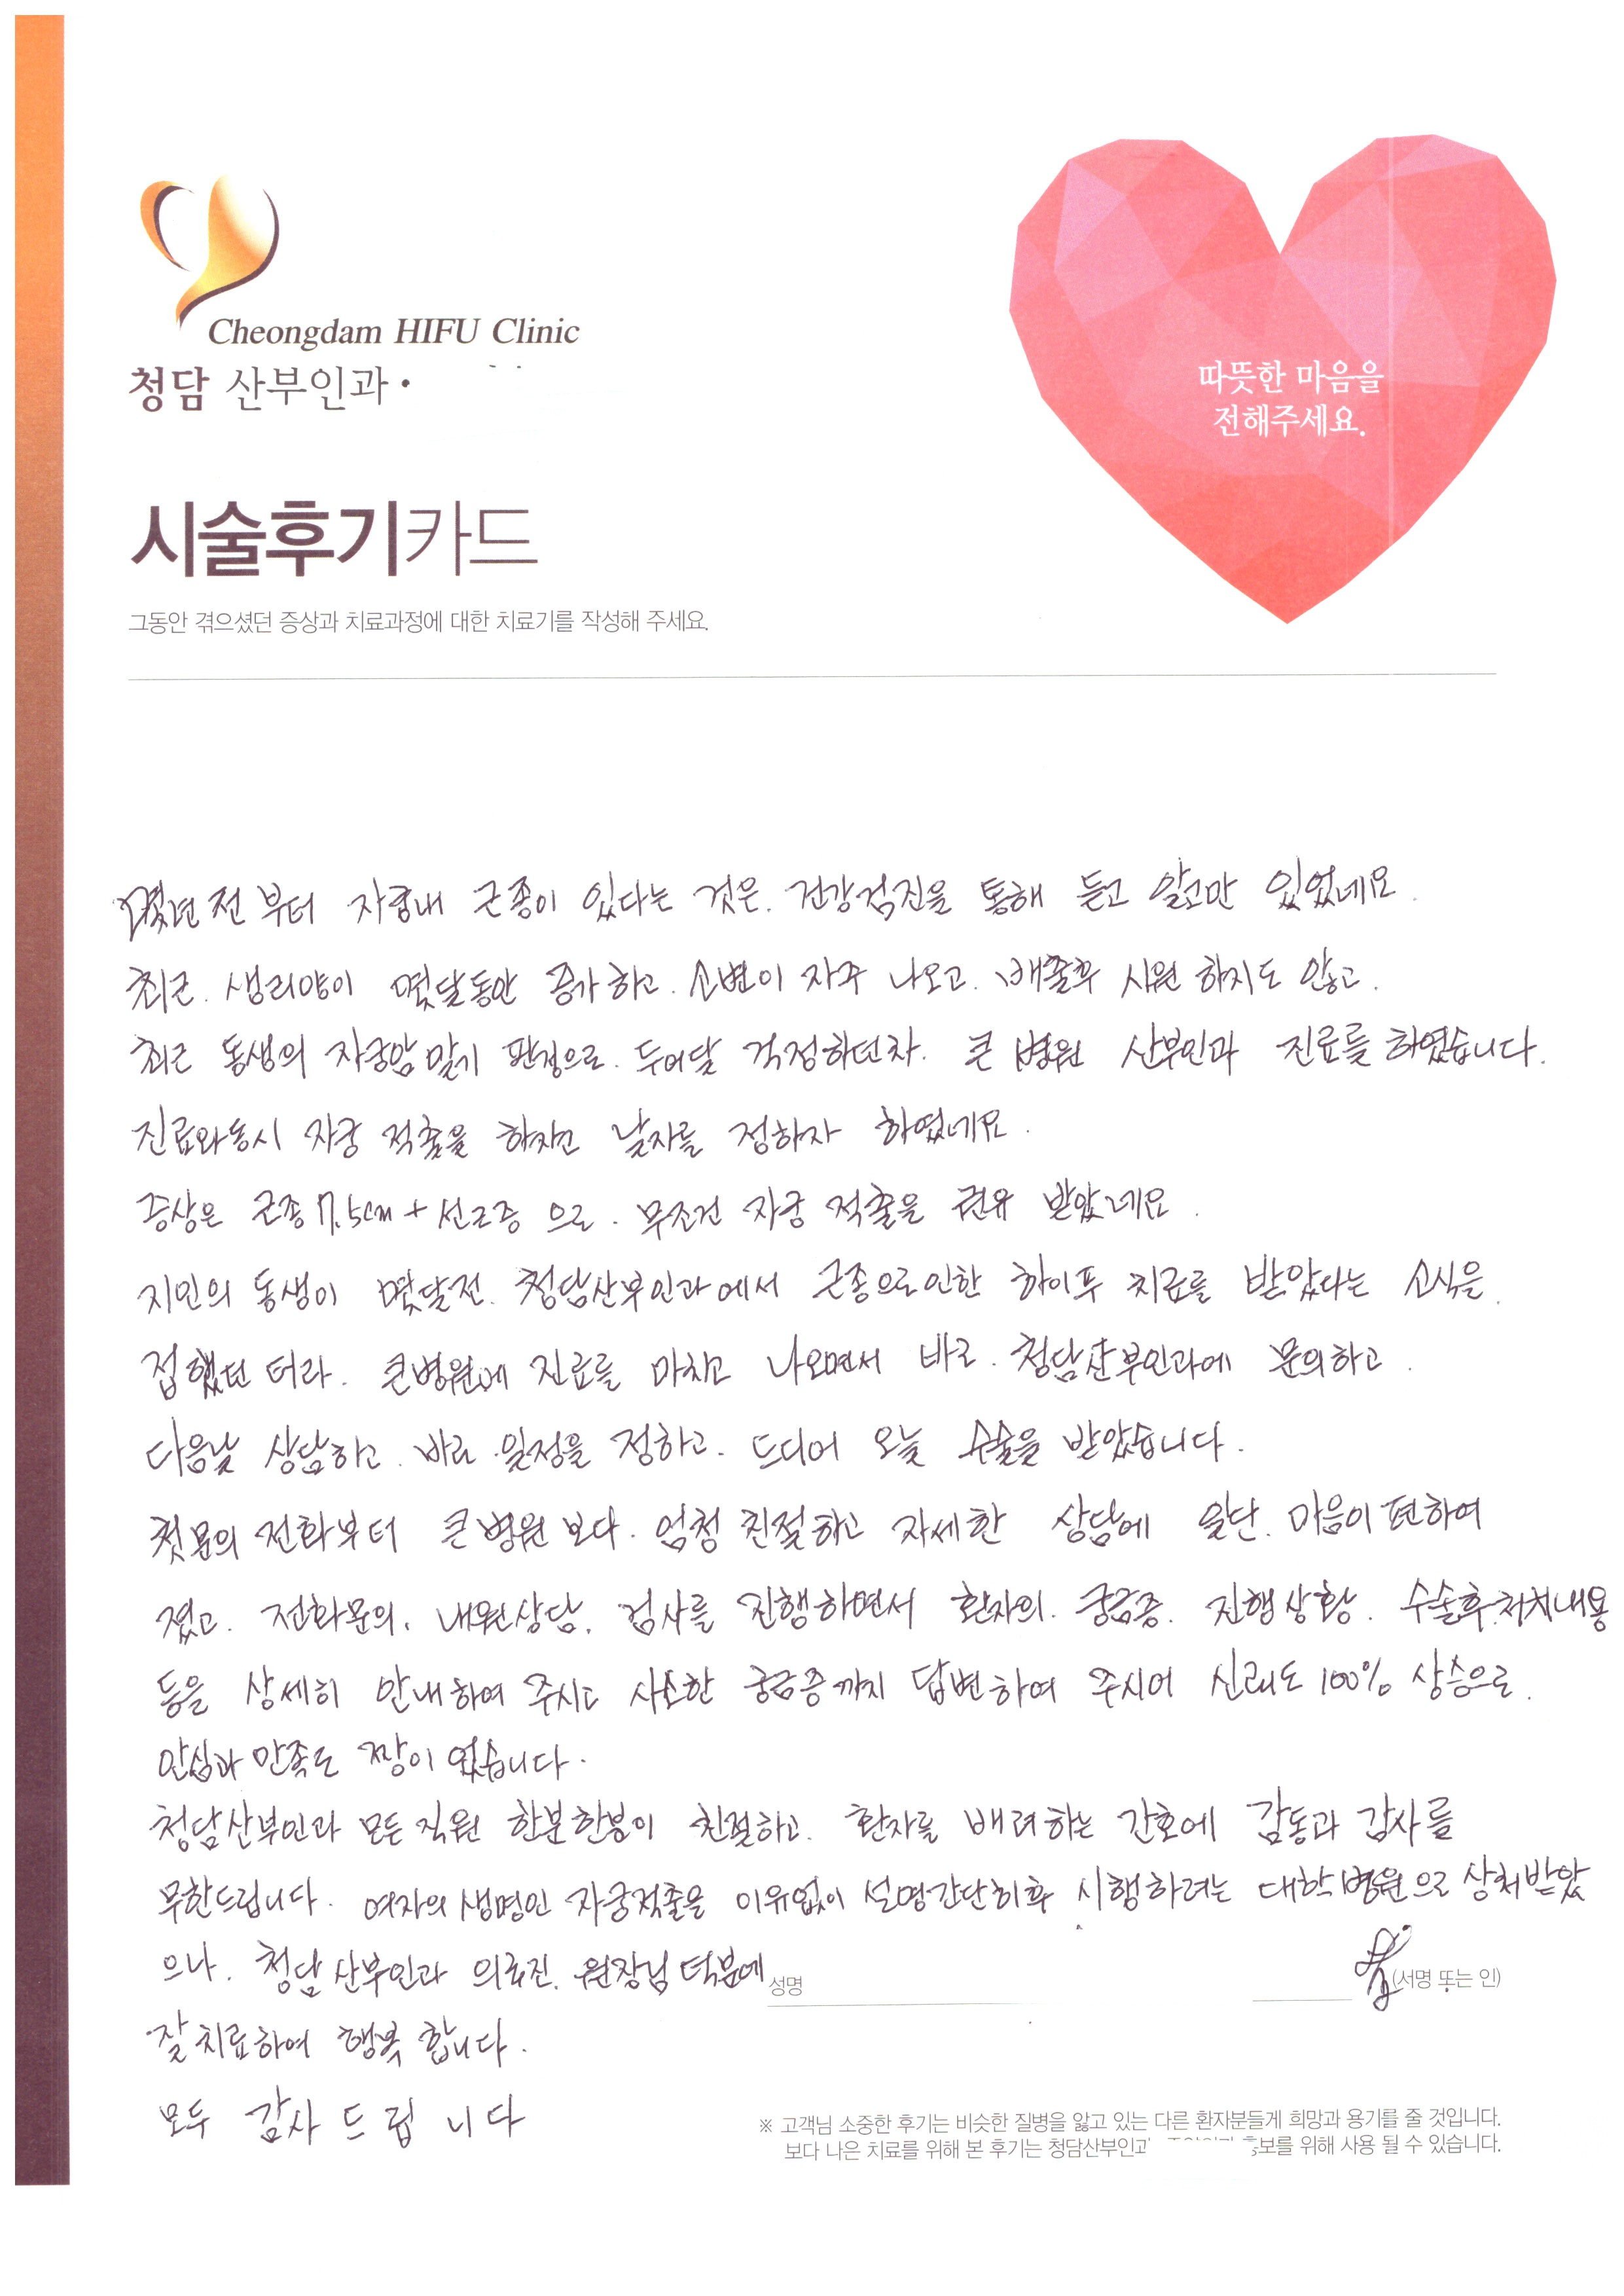 Cheongdam HIFU Clinic
청담 산부인과 •
따뜻한 마음을
전해주세요.
시술후기카드
그동안 겪으셨던 증상과 치료과정에 대한 치료기를 작성해 주세요.
몇년전 부터 자궁내 근종이 있다는 것은. 건강검진을 통해 듣고 알고만 있었네요.
최근. 생리양이 몇달동안 증가하고. 소변이 자주 나오고. 배출후 시원 하지도 않고.
최근 동생의 자궁암 말기 판정으로. 두어달 걱정하던차. 큰 병원 산부인과 진료를 하였습니다.
진료와동시 자궁 적출을 하자고 날자를 정하자 하였네요.
증상은 근종 7.5cm + 선근증 으로. 무조건 자궁 적출을 권유 받았네요.
지인의 동생이 몇달전. 청담산부인과에서 근종으로인한 하이푸 치료를 받았다는 소식을.
접했던 터라. 큰병원에 진료를 마치고 나오면서 바로. 청담산부인과에 문의하고.
다음날 상담하고. 바로 일정을 정하고. 드디어 오늘 수술을 받았습니다.
첫문의 전화부터 큰병원 보다. 엄청 친절하고 자세한 상담에 일단. 마음이 편하여
졌고. 전화문의. 내원상담. 검사를 진행하면서 환자의. 궁금증. 진행상황. 수술후.처치내용
등을 상세히 안내하여 주시고 사소한 궁금증까지 답변하여 주시어 신뢰도 100% 상승으로.
안심과 만족도 짱이 었습니다.
청담산부인과 모든 직원 한분한분이 친절하고. 환자를 배려하는 간호에 감동과 감사를
무한드립니다. 여자의 생명인 자궁적출을 이유없이 설명간단히후 시행하려는 대학병원으로 상처받았
으나. 청담산부인과 의료진. 원장님 덕분에
성명
(서명 또는 인)
잘치료하여 행복 합니다.
모두 감사 드립 니다
※ 고객님 소중한 후기는 비슷한 질병을 앓고 있는 다른 환자분들게 희망과 용기를 줄 것입니다.
보다 나은 치료를 위해 본 후기는 청담산부인과 홍보를 위해 사용 될 수 있습니다.